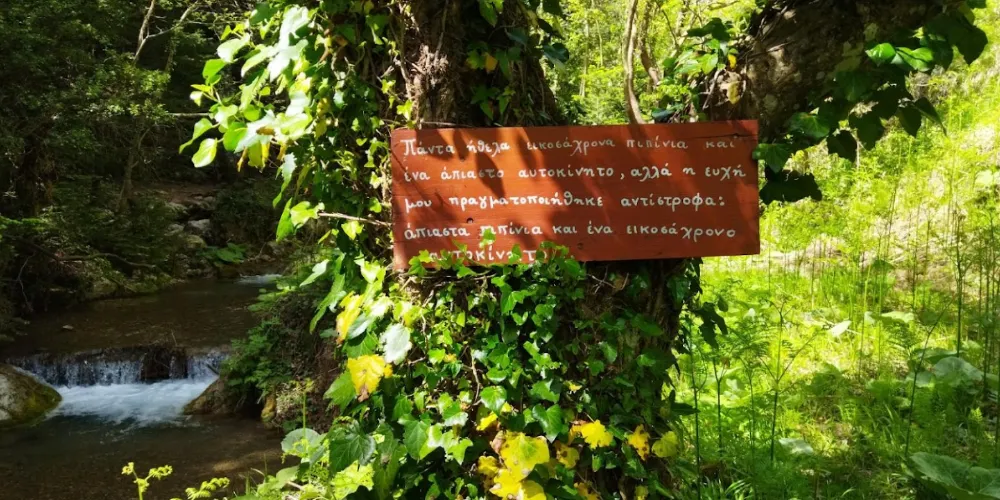 Πάντα ήθελα εικοσάχρονα πιπίνια και
ένα άπιαστο αυτοκίνητο, αλλά η ευχή
μου πραγματοποιήθηκε αντίστροφα:
άπιαστα πιπίνια και ένα εικοσάχρονο
αυτοκίνητο